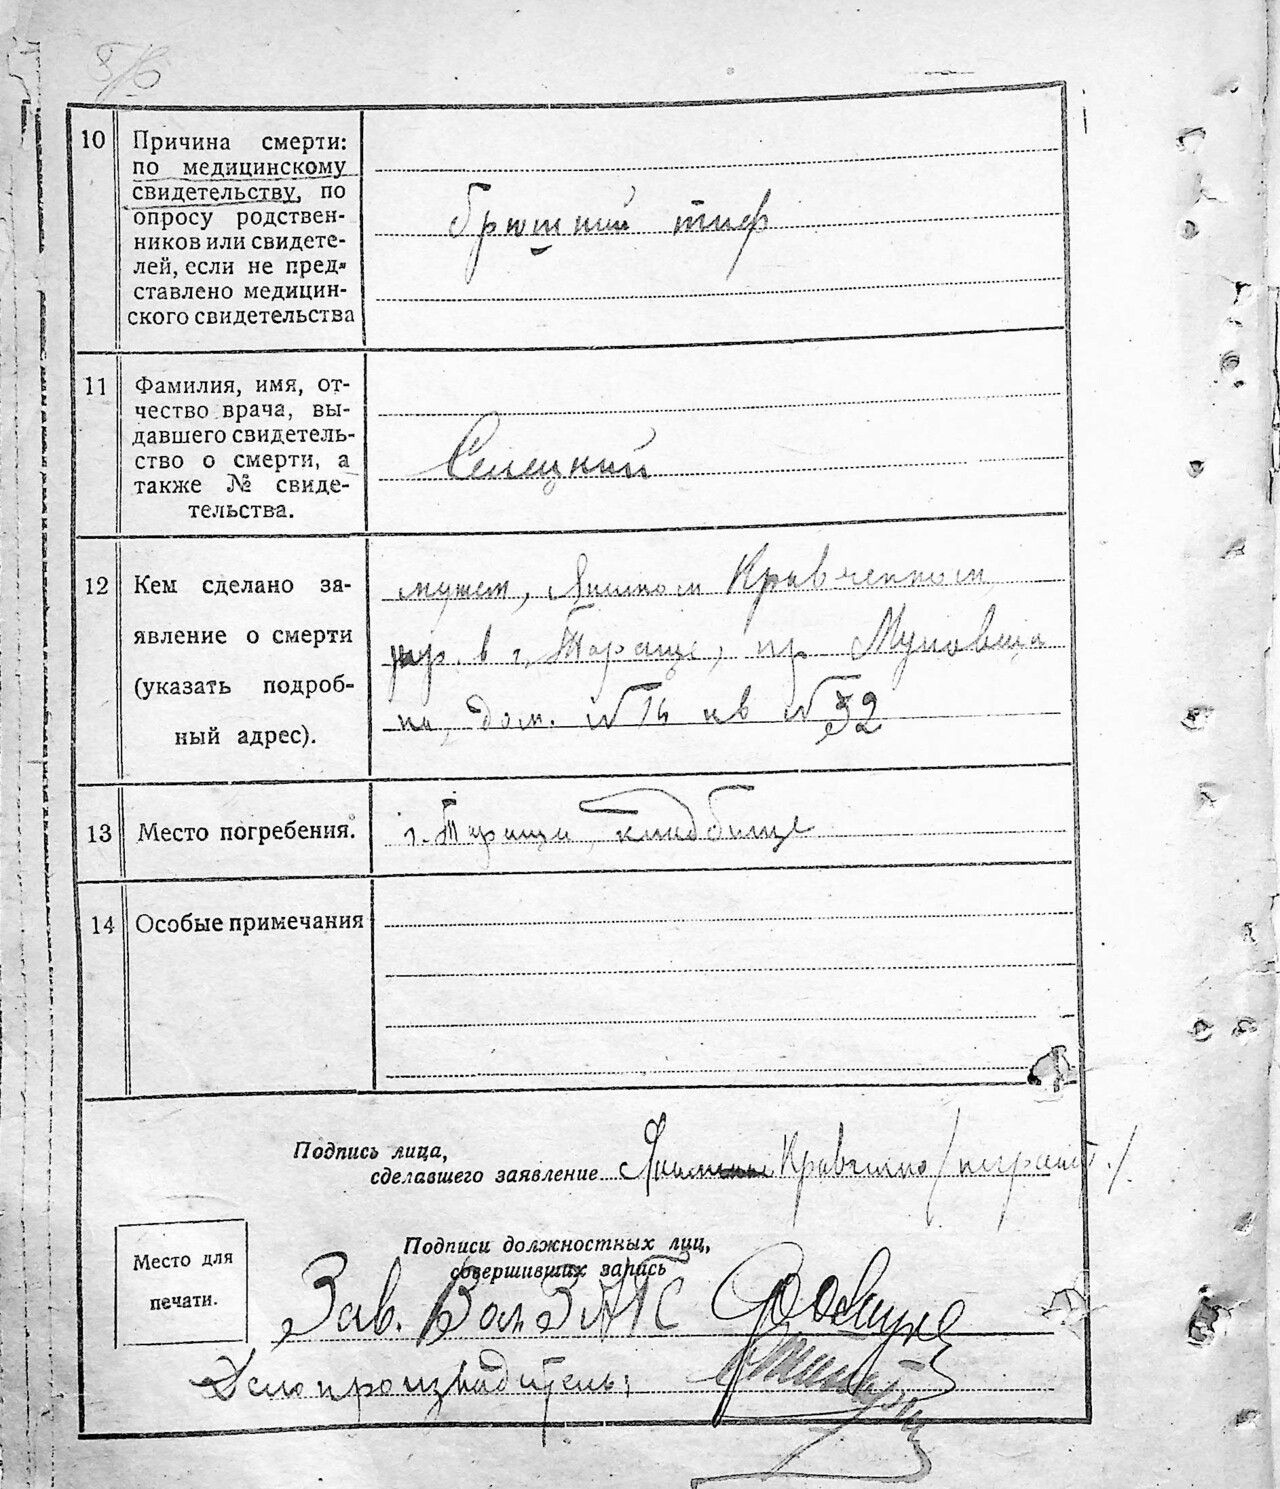 10
Причина смерти:
по медицинскому
свидетельству, по
опросу родствен-
ников или свидете-
лей, если не пред-
ставлено медицин-
ского свидетельства
брюшний тиф
11
Фамилия, имя, от-
чество врача, вы-
давшего свидетель-
ство о смерти, а
также № свиде-
тельства.
Селецкий
12
Кем сделано за-
явление о смерти
(указать подроб-
ный адрес).
мужем, Якимом Кравченком
в г. Тараще, пр
дом. № кв № 32
13
Место погребения.
г. Тараща, кладбище
14
Особые примечания
Подпись лица,
сделавшего заявление Кравченко /неграмот./
Подписи должностных лиц,
совершивших запись
Место для
печати.
Зав. ЗАГС
Делопроизводитель: